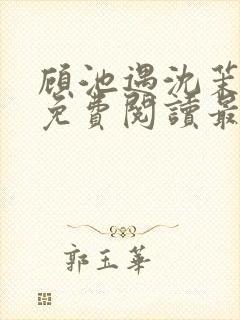 顾池遇沈茉
免費閱讀最
郭玉華